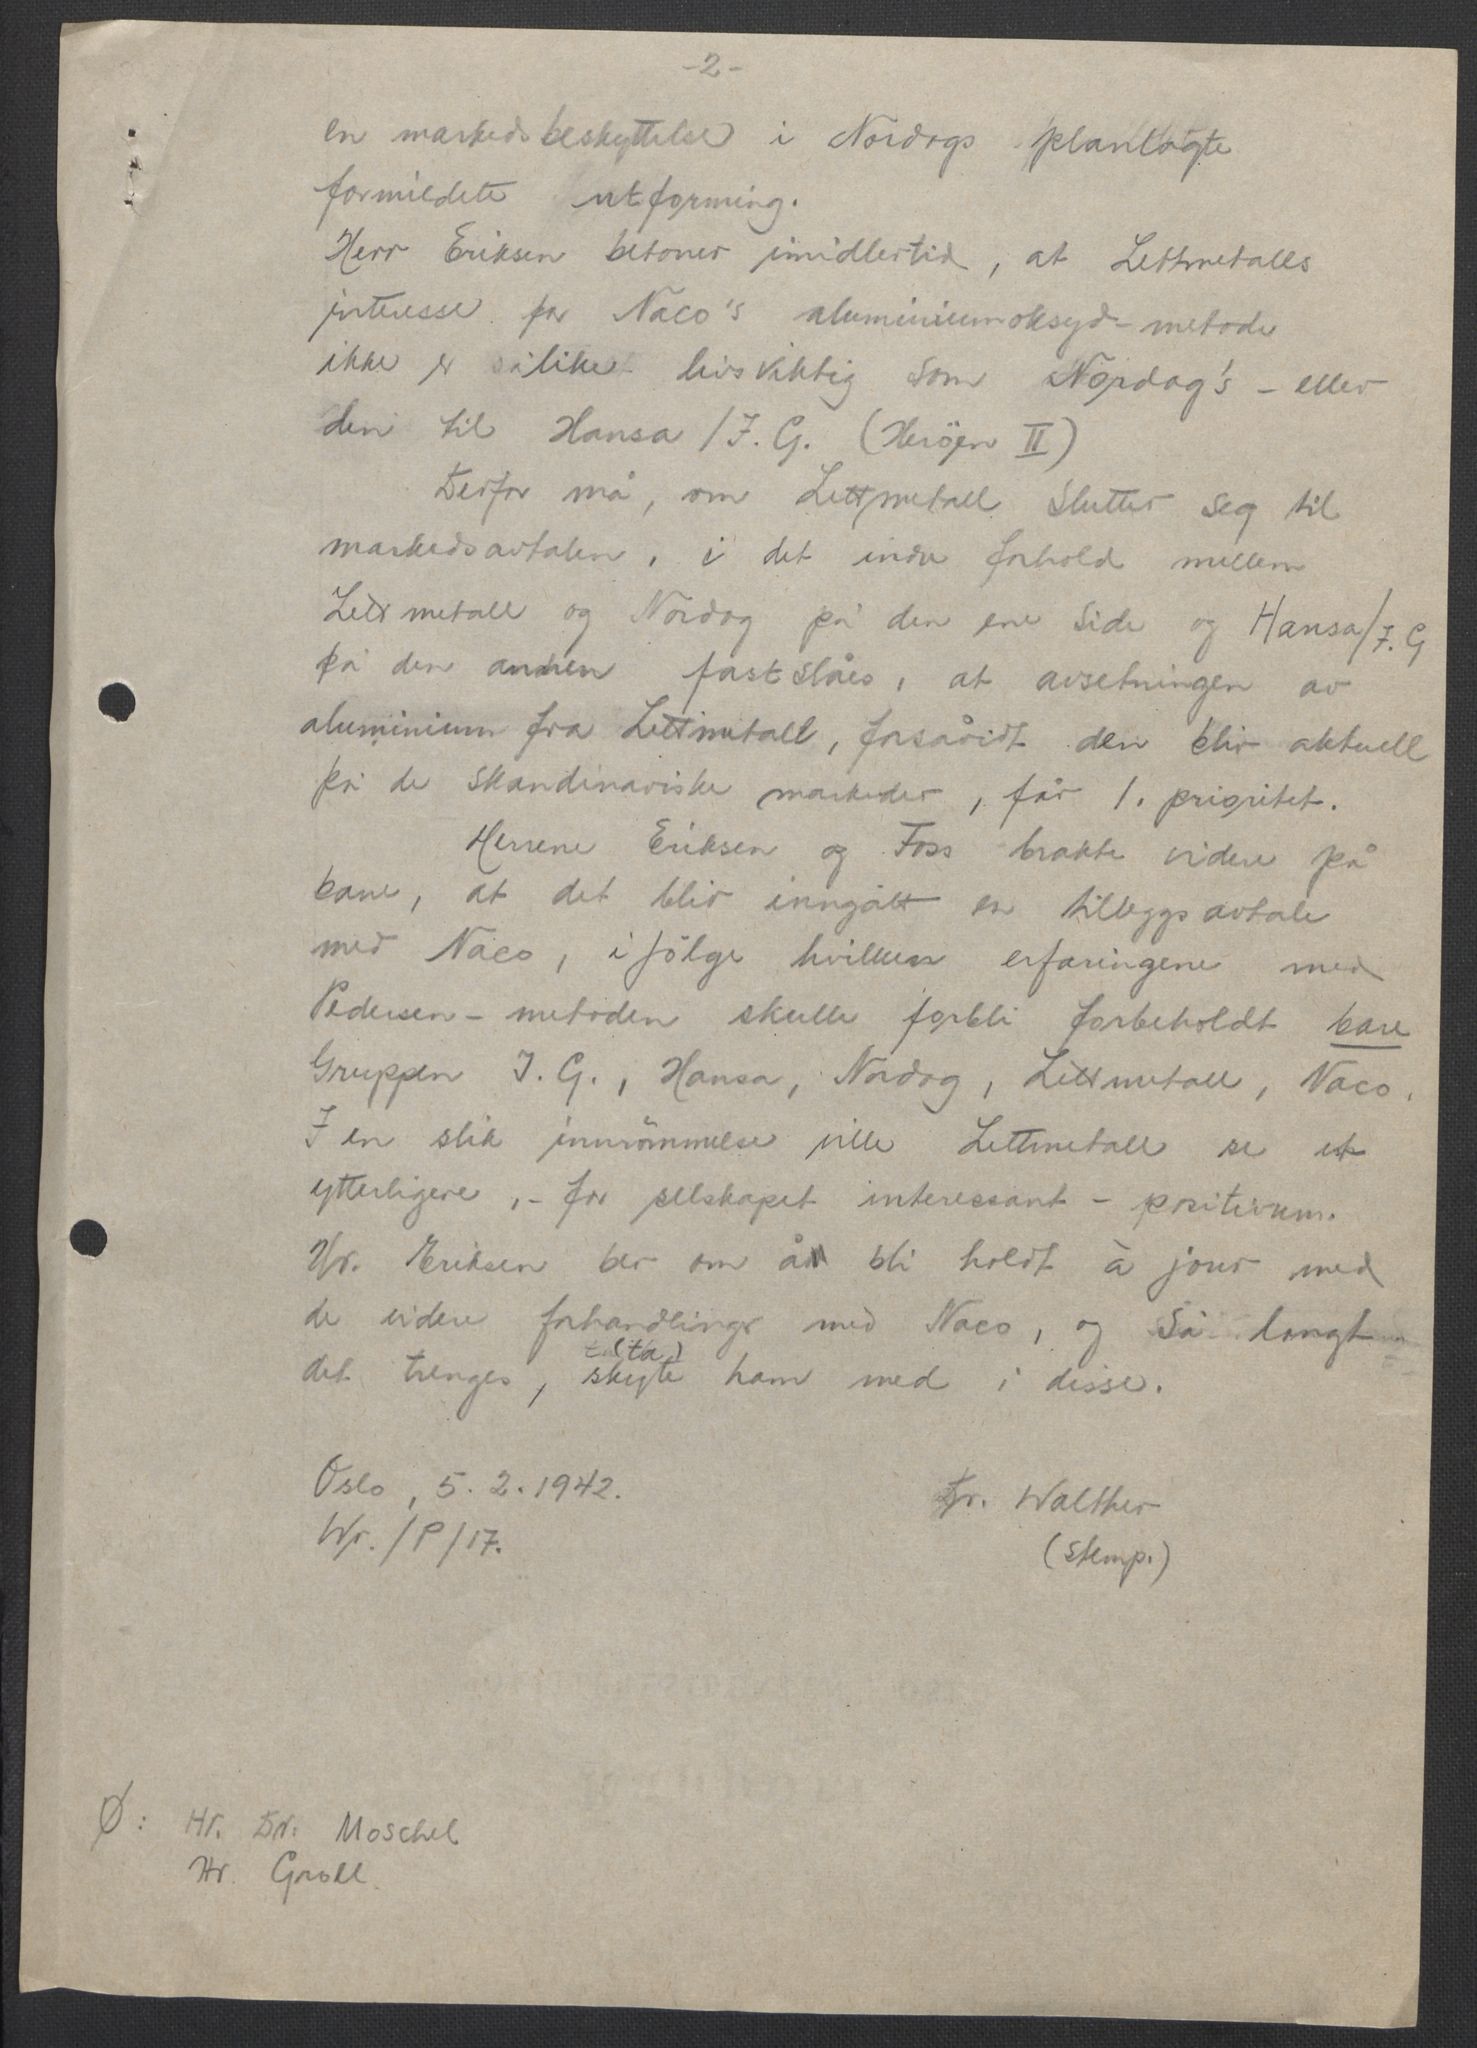 -2-
en markedsbeskyttelse i Nordags planlagte
formildete utforming.
Herr Eriksen betoner imidlertid, at Lettmetalls
interesse for Naco's aluminiumoksyd-metode
ikke er så like livsviktig som Nordag's - eller
den til Hansa/I.G. (Heröen II)
Derfor må, om Lettmetall slutter seg til
markedsavtalen, i det indre forhold mellem
Lettmetall og Nordag på den ene side og Hansa/I.G
på den annen fastslåes, at avsetningen av
aluminium fra Lettmetall, forsåvidt den blir aktuell
på de skandinaviske markeder, får 1. prioritet.
Herrene Eriksen og Foss brakte videre på
bane, at det blir inngått en tilleggsavtale
med Naco, ifölge hvilken erfaringene med
Pedersen-metoden skulle forbli forbeholdt bare
Gruppen I.G., Hansa, Nordag, Lettmetall, Naco.
I en slik innrömmelse ville Lettmetall se et
ytterligere, - for selskapet interessant - positivum.
Hr. Eriksen ber om å bli holdt à jour med
de videre forhandlinger med Naco, og så langt
det trenges, skyte (ta) ham med i disse.
Oslo, 5.2.1942.
Wr./P/17.
Dr. Walther
(stemp.)
Ø: Hr. Dr. Moschel
Hr. Groll